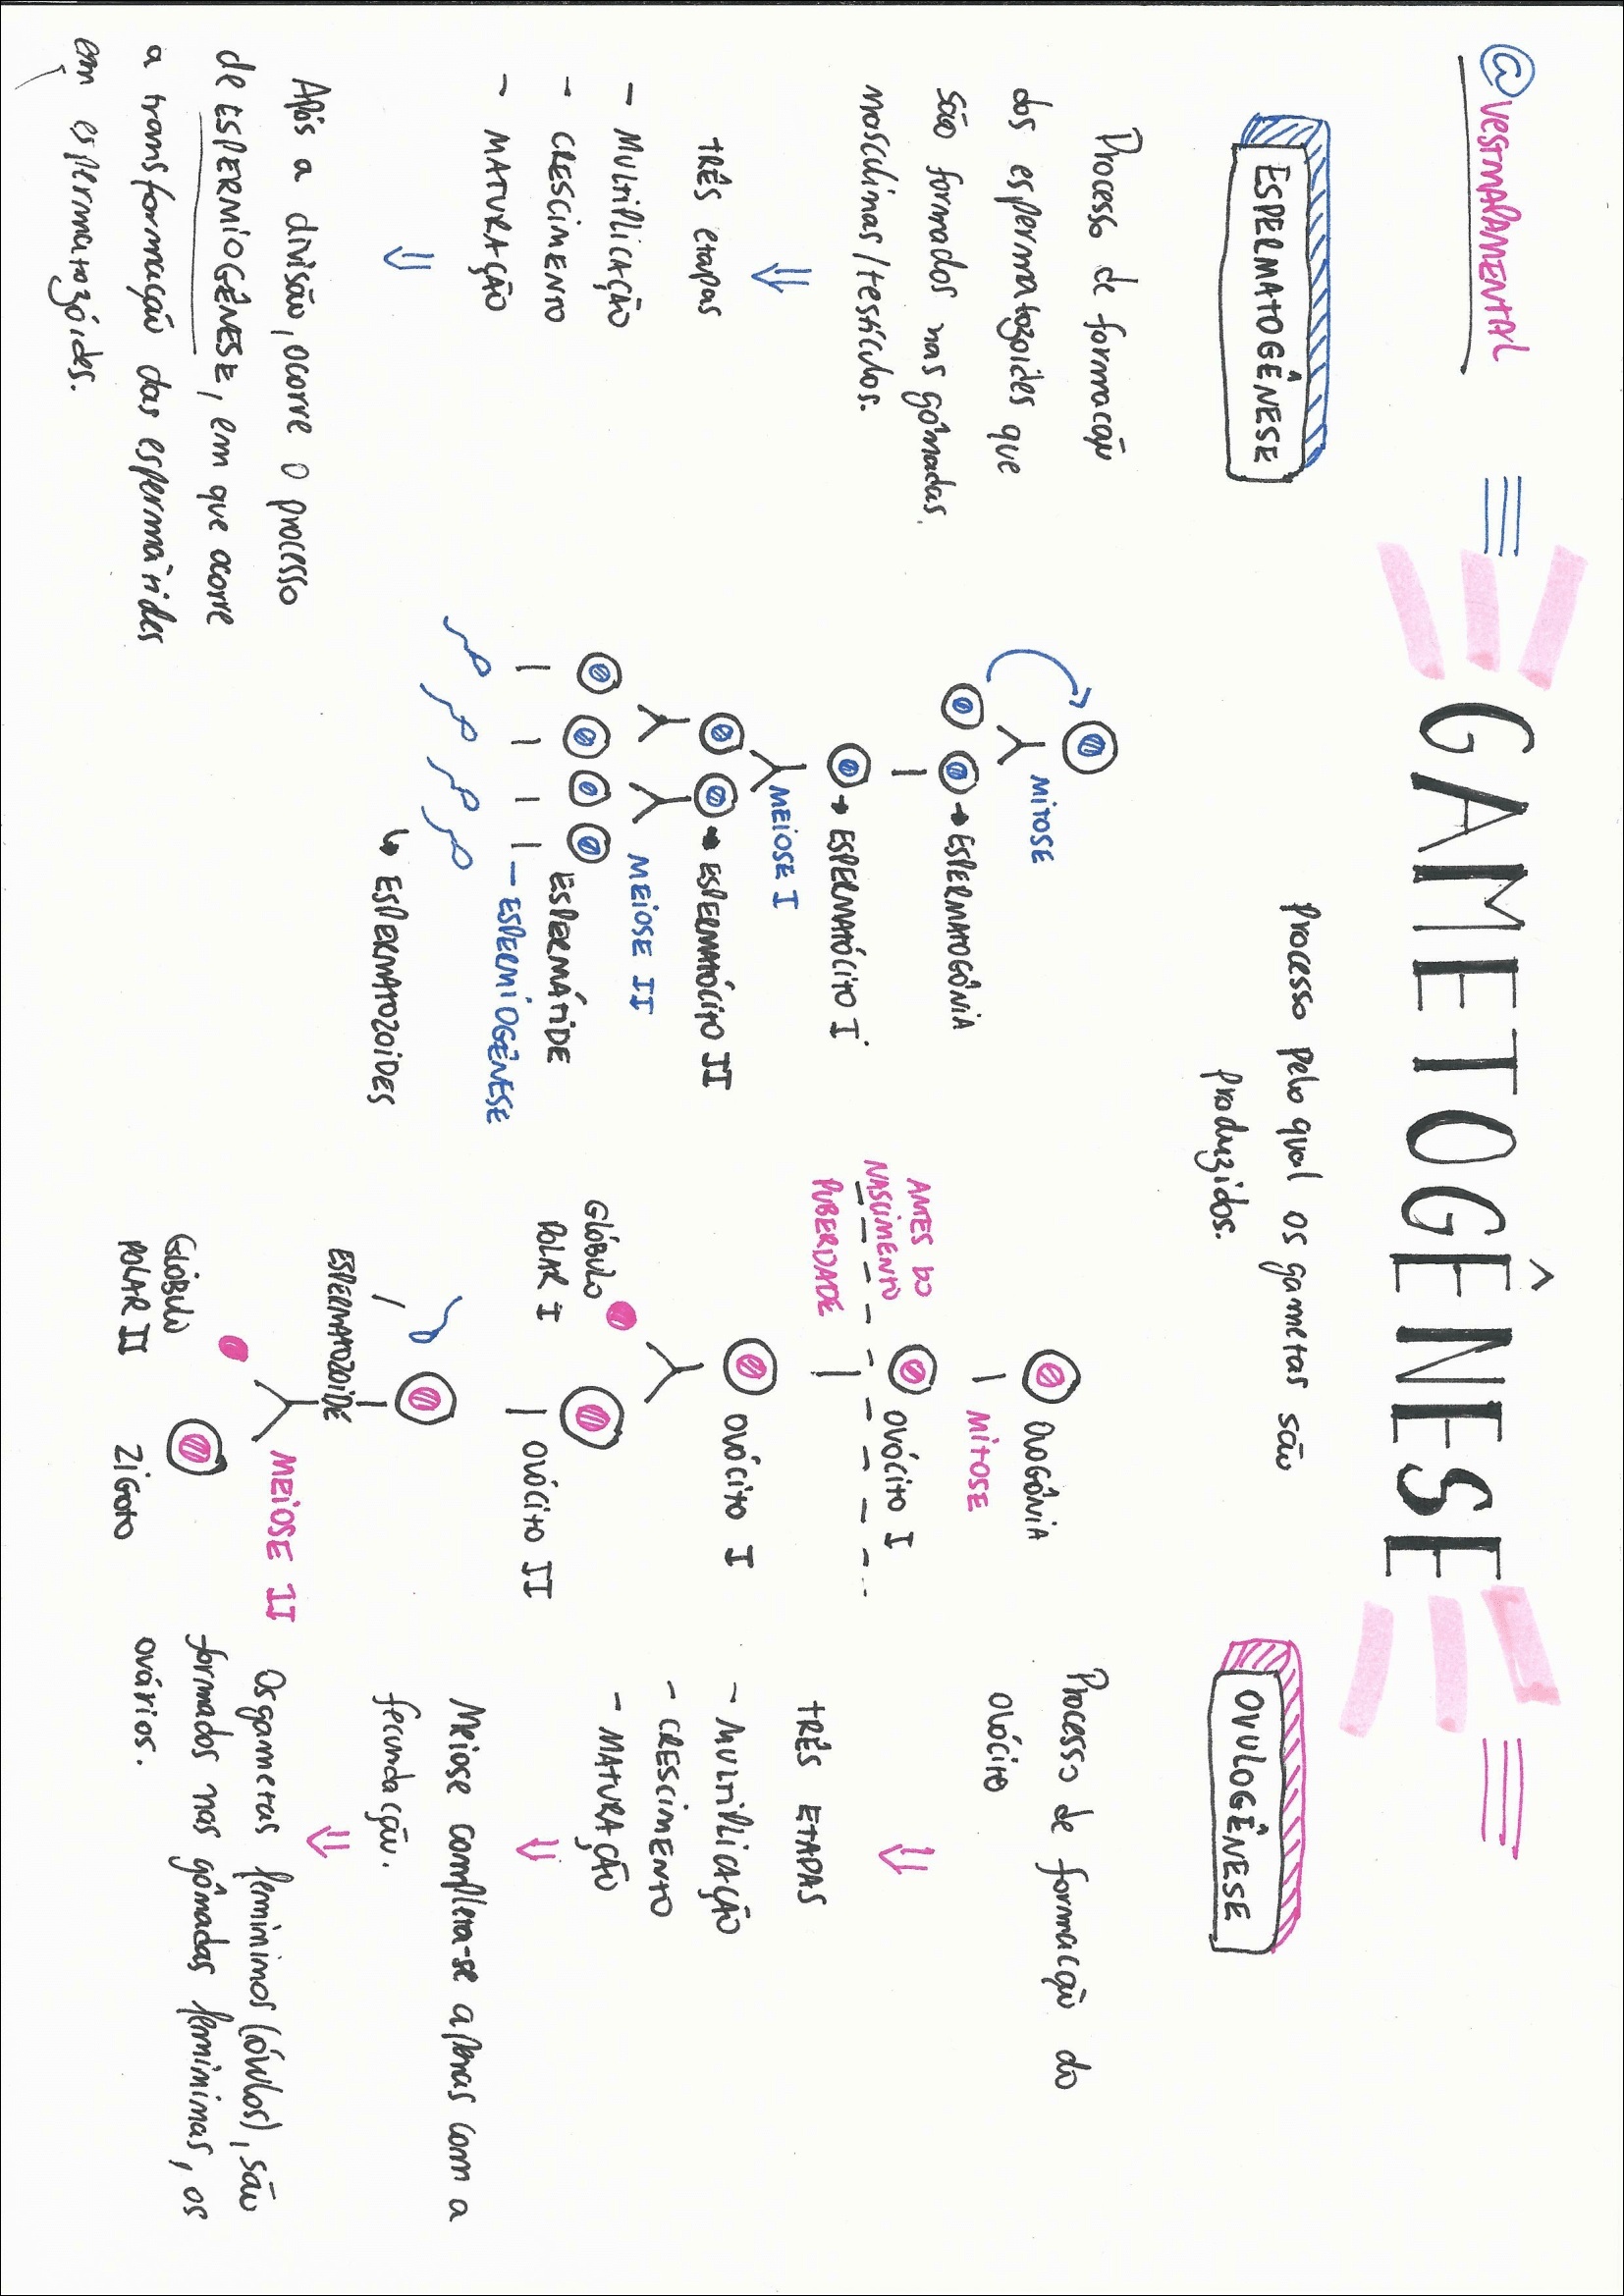 @VESTMAPAMENTAL
GAMETOGÊNESE
Processo pelo qual os gametas são
produzidos.
ESPERMATOGÊNESE
Processo de formação
dos espermatozoides que
são formados nas gônadas
masculinas/testículos.
TRÊS etapas
- MULTIPLICAÇÃO
- CRESCIMENTO
- MATURAÇÃO
Após a divisão, ocorre o processo
de ESPERMIOGÊNESE, em que ocorre
a transformação das espermátides
em espermatozóides.
MITOSE
→ ESPERMATOGÔNIA
→ ESPERMATÓCITO I
MEIOSE I
→ ESPERMATÓCITO II
MEIOSE II
ESPERMÁTIDE
- ESPERMIOGÊNESE
↳ ESPERMATOZOIDES
OVOGÔNIA
MITOSE
ANTES DO
NASCIMENTO
OVÓCITO I
PUBERDADE
OVÓCITO I
GLÓBULO
POLAR I
OVÓCITO II
ESPERMATOZOIDE
MEIOSE II
GLÓBULO
POLAR II
ZIGOTO
OVULOGÊNESE
Processo de formação do
olócito
TRÊS ETAPAS
- MULTIPLICAÇÃO
- CRESCIMENTO
- MATURAÇÃO
Meiose completa-se apenas com a
fecundação.
Os gametas femininos (óvulos), são
formados nas gônadas femininas, os
ovários.